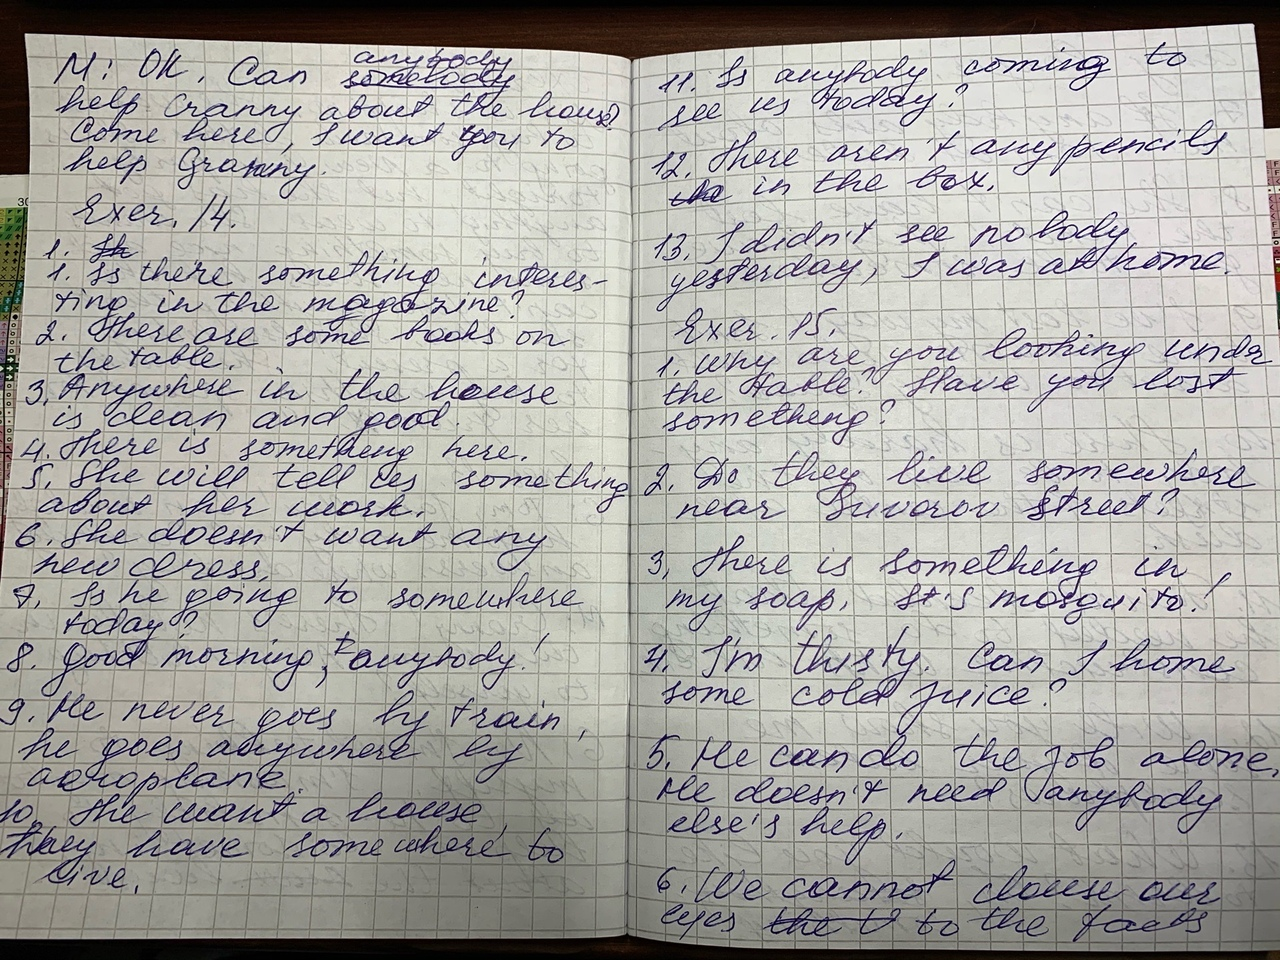 M: OK. Can anybody
somebody
help Cranny about the house?
Come here, I want you to
help Granny.
Exer. 14.
1. Th
1. Is there something interes-
ting in the magazine?
2. There are some books on
the table.
3. Anywhere in the house
is clean and good.
4. There is something here.
5. She will tell us something
about her work.
6. She doesn't want any
new dress.
7. Is he going to somewhere
today?
8. Good morning, anybody!
9. He never goes by train,
he goes anywhere by
aeroplane.
10. The want a house,
They have somewhere to
live.
11. Is anybody coming to
see us today?
12. There aren't any pencils
in the box.
13. I didn't see nobody
yesterday, I was at home.
Exer. 15.
1. Why are you looking under
the table? Have you lost
something?
2. Do they live somewhere
near Suvorov Street?
3. There is something in
my soap. It's mosquito!
4. I'm thisty. Can I home
some cold juice?
5. He can do the job alone.
He doesn't need anybody
else's help.
6. We cannot clouse our
eyes the t to the facts